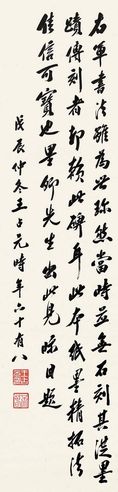 右軍書法雖為世珍然當時並無石刻其從墨
蹟傳刻者即賴此碑耳此本紙墨精拓法
佳信可寶也墨卿先生出此見眎因題
戊辰仲冬王占元時年六十有八